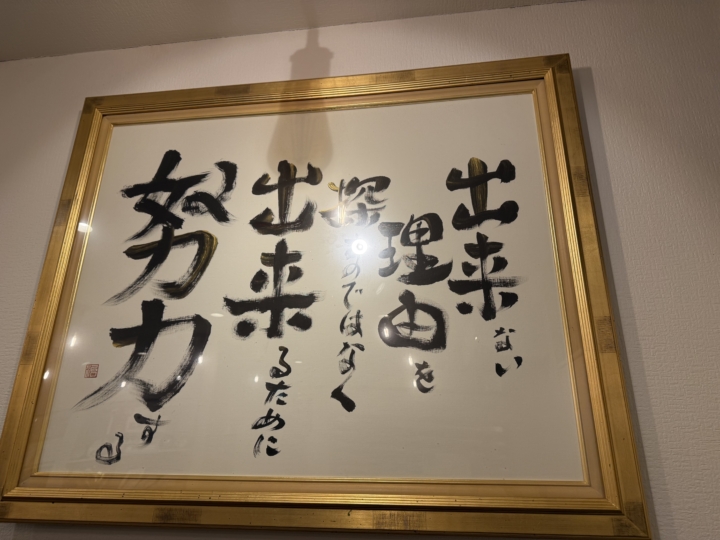 出来ない
理由を
探すのではなく
出来るために
努力する